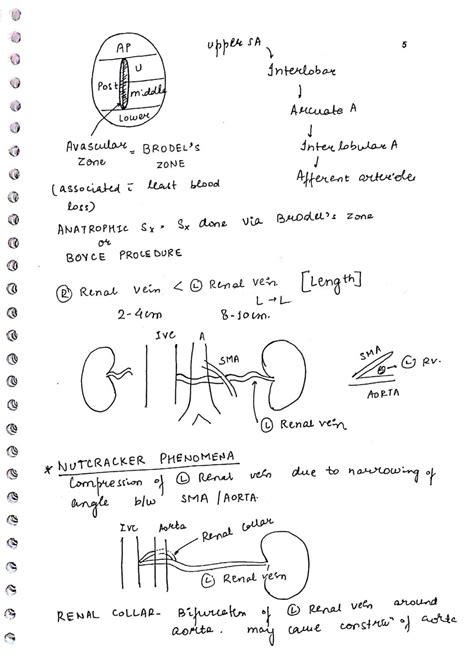 5
AP
U
Post
middle
Lower
Avascular = BRODEL'S
Zone ZONE
(associated c̄ least blood
loss)
upper SA
Interlobar
Arcuate A
Interlobular A
Afferent arteriole
ANATROPHIC Sx = Sx done via Brodel's zone
or
BOYCE PROCEDURE
(R) Renal vein < (L) Renal vein [Length]
L → L
2-4cm 8-10cm.
IVC A
SMA
(L) Renal vein
SMA
(L) RV.
AORTA
* NUTCRACKER PHENOMENA
Compression of (L) Renal vein due to narrowing of
angle b/w SMA/AORTA.
IVC Aorta Renal collar
(L) Renal vein
RENAL COLLAR- Bifurcation of (L) Renal vein around
aorta. may cause constrisn of aorta